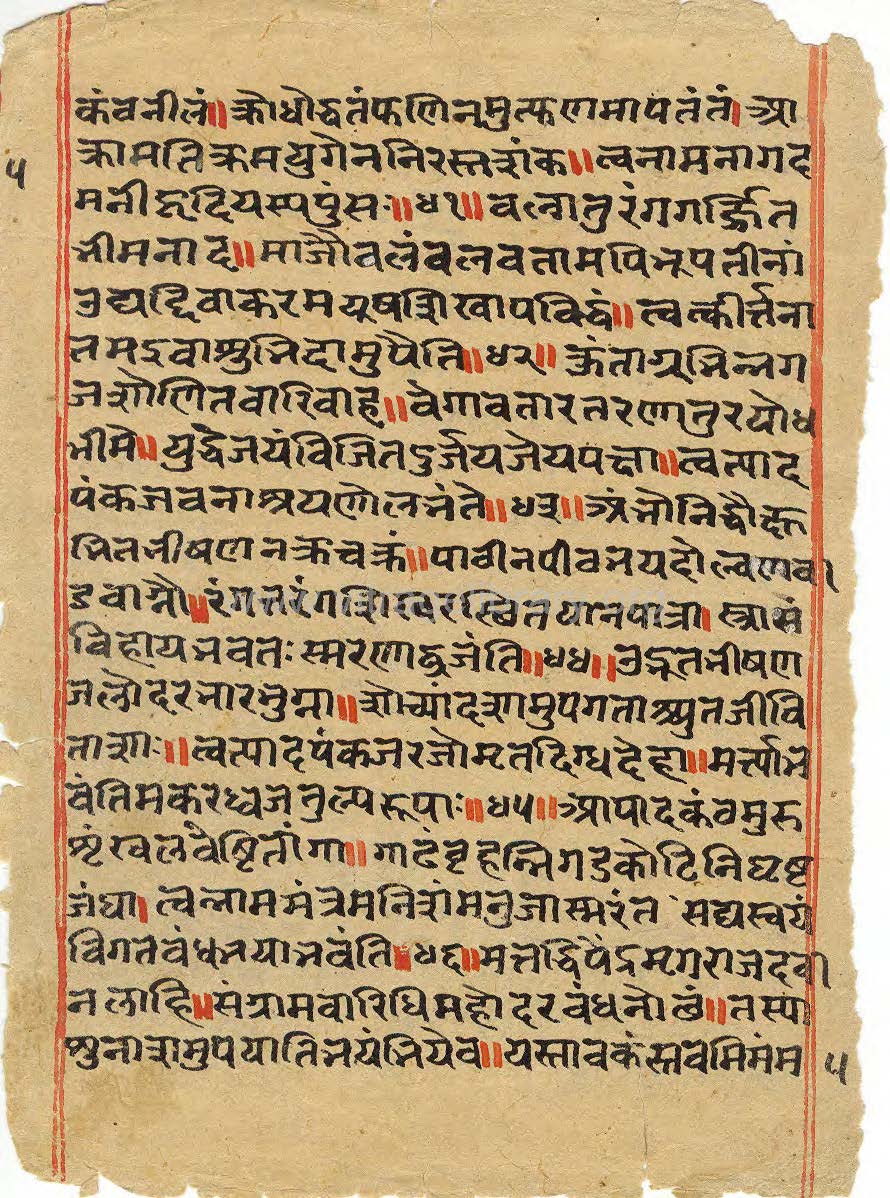 कंवनीलं॥ क्रोधोद्धतंफणिनमुत्फणमापतंतं। आ
५ क्रामतिक्रमयुगेननिरस्तशंक॥ त्वनामनागद
मनीहृदियस्यपुंसः॥ ४१॥ वल्गत्तुरंगगर्ज्जित
भीमनाद॥ माजौवलंवलवतामपिभूपतीनां
उद्यद्दिवाकरमयूषशिखापविद्धं॥ त्वत्कीर्त्तना
तमइवाशुभिदामुपैति॥ ४२॥ कुंताग्रभिन्नग
जशोणितवारिवाह॥ वेगावतारतरणातुरयोध
भीमे॥ युद्धेजयंविजितदुर्जयजेयपक्षा॥ त्वत्पाद
पंकजवनाश्रयणोलभंते॥ ४३॥ अंभोनिधौक्षु
भितभीषणनक्रचक्रं॥ पाठीनपीठभयदोल्वणवा
डवाग्नौ॥ रंगत्तरंगशिखरस्थितयानपात्रा। स्त्रासं
विहायभवतःस्मरणाद्व्रजंति॥ ४४॥ उद्भूतभीषण
जलोदरभारभुग्ना॥ शोच्यांदशामुपगताश्च्युतजीवि
ताशाः॥ त्वत्पादपंकजरजोमृतदिग्धदेहा॥ मर्त्त्याभ
वंतिमकरध्वजतुल्यरूपाः॥ ४५॥ आपादकंठमुरु
शृंखलवेष्टितांगा॥ गाढंवृहन्निगडकोटिनिघृष्ट
जंघा। त्वन्नाममंत्रमनिशंमनुजास्मरंत सद्यस्वयं
विगतवंधभयाभवंति॥ ४६॥ मत्तद्विपेंद्रमृगराजदवा
नलाहि॥ संग्रामवारिधिमहोदरवंधनोत्थं॥ तस्या
शुनाशमुपयातिभयंभियेव॥ यस्तावकंस्तवमिमंम ५